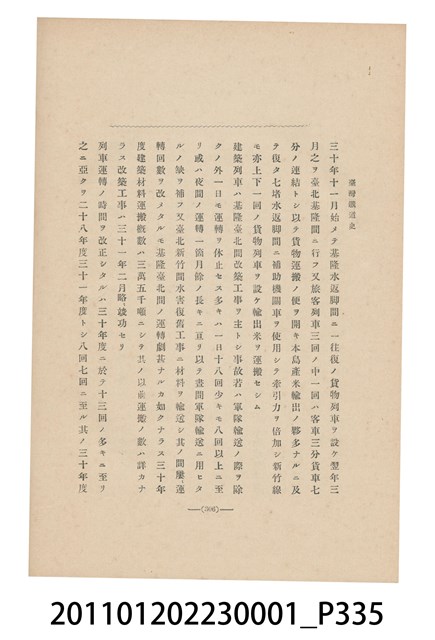 臺灣鐵道史
三十年十一月始メテ基隆水返脚間ニ一往復ノ貨物列車ヲ設ケ翌年三
月之ヲ臺北基隆間ニ行フ又旅客列車三回ノ中一回ハ客車三分貨車七
分ノ連結トシ以テ貨物運搬ノ便ヲ開キ本島產米輸出ノ夥多ナルニ及
テ復タ七堵水返脚間ニ補助機關車ヲ使用シテ牽引力ヲ倍加シ新竹線
モ亦上下一回ノ貨物列車ヲ設ケ輸出米ヲ運搬セシム
建築列車ハ基隆臺北間改築工事ヲ主トシ事故若ハ軍隊輸送ノ際ヲ除
クノ外一日モ運轉ヲ休止セス多キハ一日十八回少キモ八回以上ニ至
リ或ハ夜間ノ運轉一箇月餘ノ長キニ亘リ以テ晝間軍隊輸送ニ用ヒタ
ルノ缺ヲ補フ又臺北新竹間水害復舊工事ニ材料ヲ輸送シ其ノ間屢運
轉回數ヲ改メタルモ基隆臺北間ノ運轉劇甚ナルカ如クナラス三十年
度建築材料運搬槪數ハ三萬五千噸ニシテ其ノ以前運搬ノ數ハ詳カナ
ラス改築工事ハ三十一年二月略竣功セリ
列車運轉ノ時間ヲ改正シタルハ三十年度ニ於テ十三回ノ多キニ至リ
之ニ亞クヲ二十八年度三十一年度トシ八回七回ニ至ル其ノ三十年度
(306)
201101202230001_P335